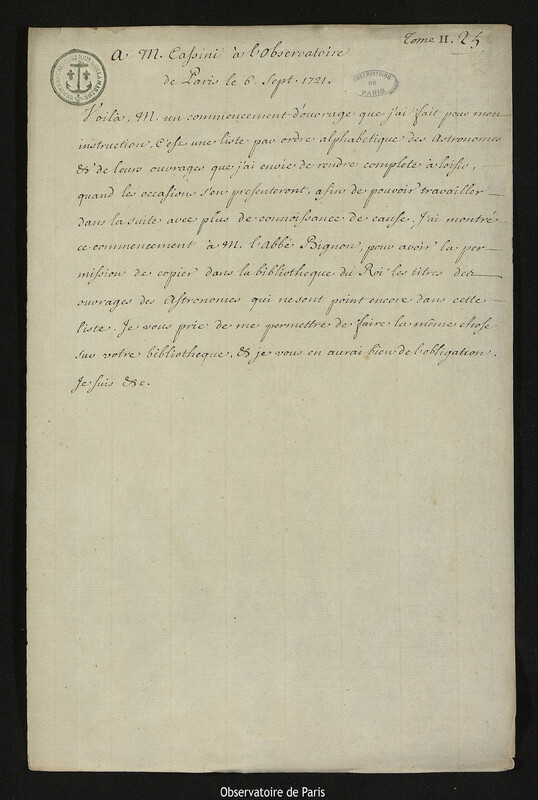 Tome II. 25
A M. Cassini à l'Observatoire
de Paris le 6. Sept. 1721.
OBSERVATOIRE
DE
PARIS
Voilà, M. un commencement d'ouvrage que j'ai fait pour mon
instruction. C'est une liste par ordre alphabetique des Astronomes
& de leurs ouvrages que j'ai envie de rendre complete à loisir,
quand les occasions s'en presenteront, afin de pouvoir travailler
dans la suite avec plus de connoissance de cause. J'ai montré
ce commencement à M. l'Abbé Bignon, pour avoir la per
mission de copier dans la bibliotheque du Roi les titres des
ouvrages des Astronomes qui ne sont point encore dans cette
liste. Je vous prie de me permettre de faire la même chose
sur votre bibliotheque, & je vous en aurai bien de l'obligation.
Je suis &c.
Observatoire de Paris